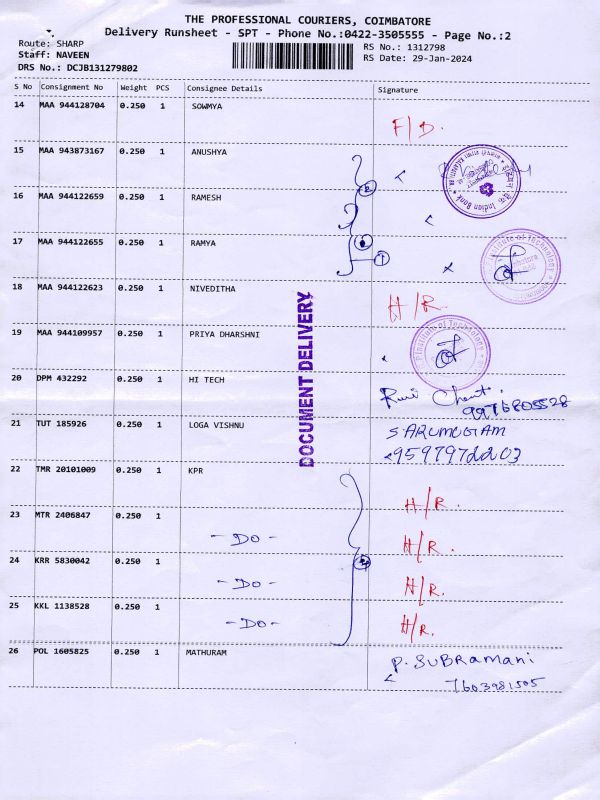 THE PROFESSIONAL COURIERS, COIMBATORE
Delivery Runsheet - SPT - Phone No.:0422-3505555 - Page No.:2
Route: SHARP
RS No.: 1312798
Staff: NAVEEN
RS Date: 29-Jan-2024
DRS No.: DCJB131279802
S No Consignment No Weight PCS Consignee Details Signature
14 MAA 944128704 0.250 1 SOWMYA
F/D.
15 MAA 943873167 0.250 1 ANUSHYA
Indian Bank
16 MAA 944122659 0.250 1 RAMESH
17 MAA 944122655 0.250 1 RAMYA
Institute of Technology
18 MAA 944122623 0.250 1 NIVEDITHA
H/R.
19 MAA 944109957 0.250 1 PRIYA DHARSHNI
Institute of Technology
DOCUMENT DELIVERY
20 DPM 432292 0.250 1 HI TECH
9976805528
21 TUT 185926 0.250 1 LOGA VISHNU
S ARUMUGAM
9597972203
22 TMR 20101009 0.250 1 KPR
H/R.
23 MTR 2406847 0.250 1
- DO - H/R.
24 KRR 5830042 0.250 1
- DO - H/R.
25 KKL 1138528 0.250 1
- DO - H/R.
26 POL 1605825 0.250 1 MATHURAM
P. SUBRAMANi
7603981505